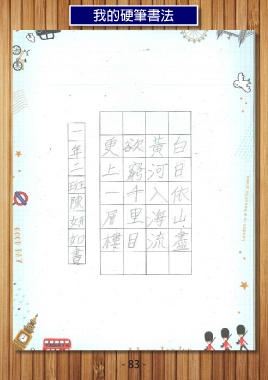 我的硬筆書法
白日依山盡
黃河入海流
欲窮千里目
更上一層樓
一年二班陳妍如書
- 83 -